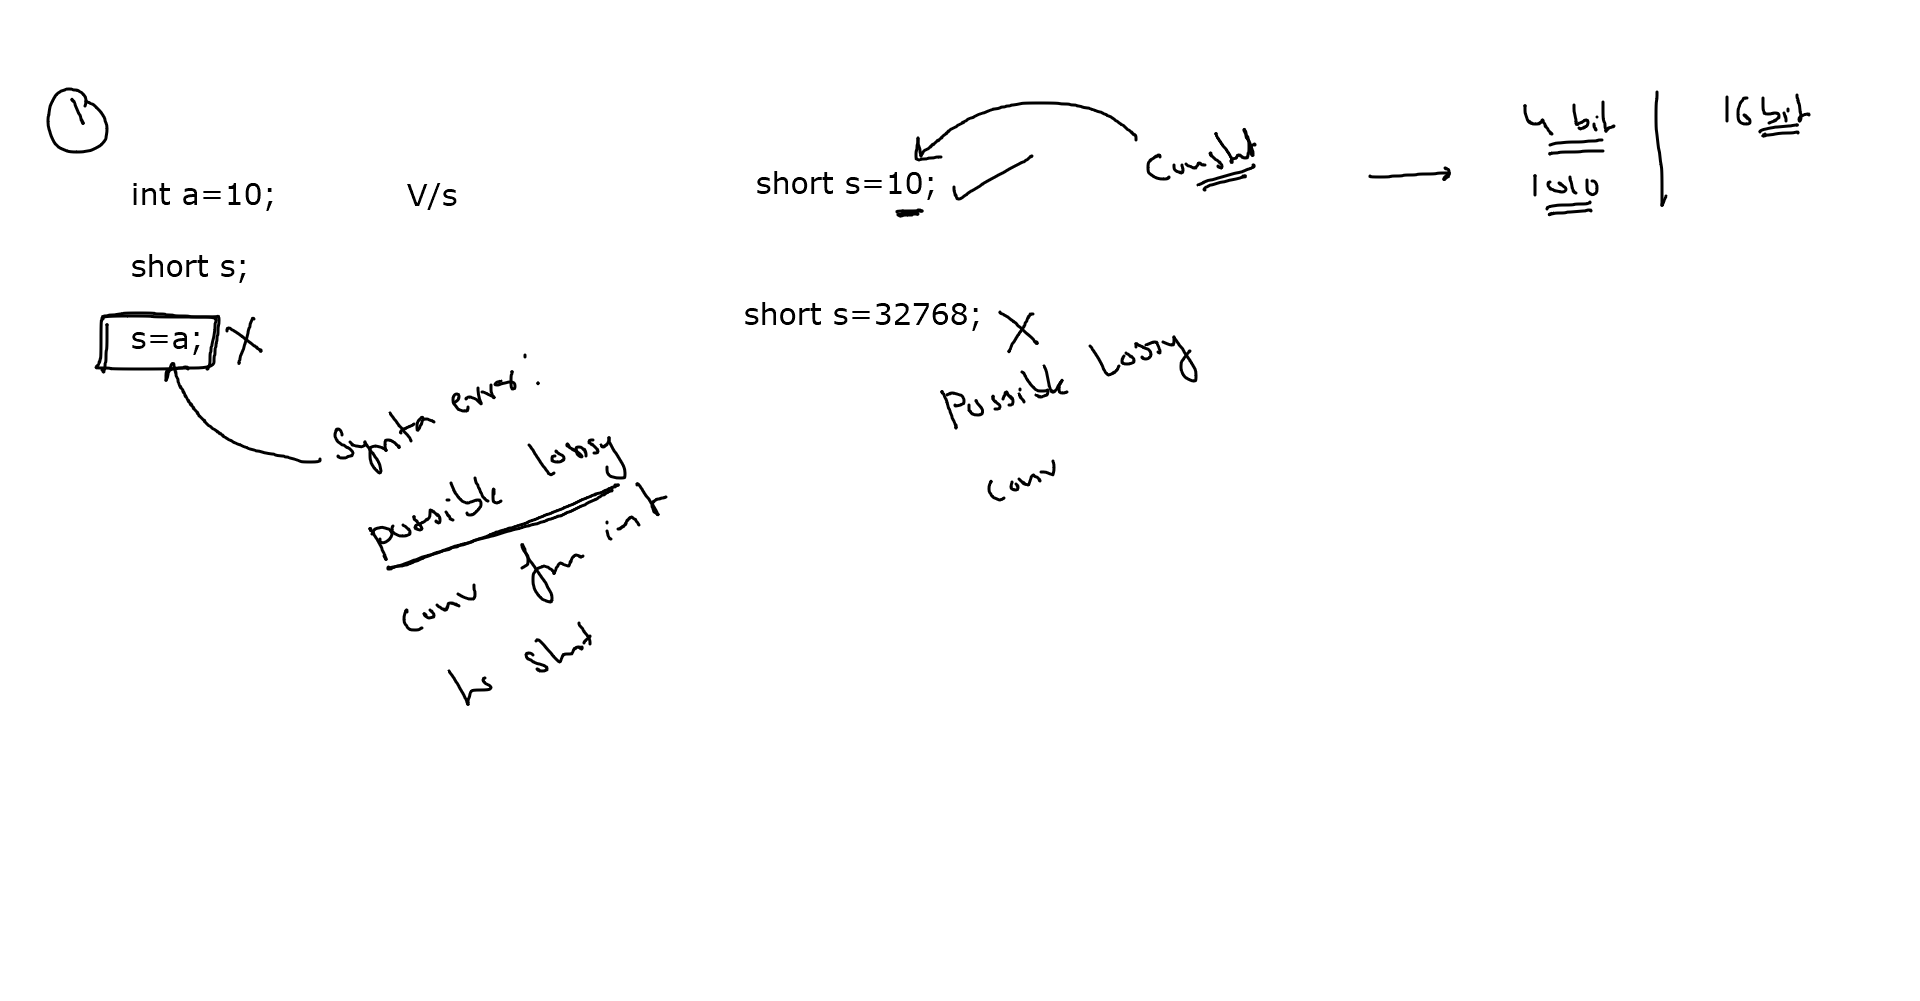 1
int a=10;
V/s
short s;
s=a; X
Synta error:
possible lossy
conv from int
to short
short s=10;
Constnt
4 bit | 16 bit
1010
short s=32768; X
Possible Lossy
conv